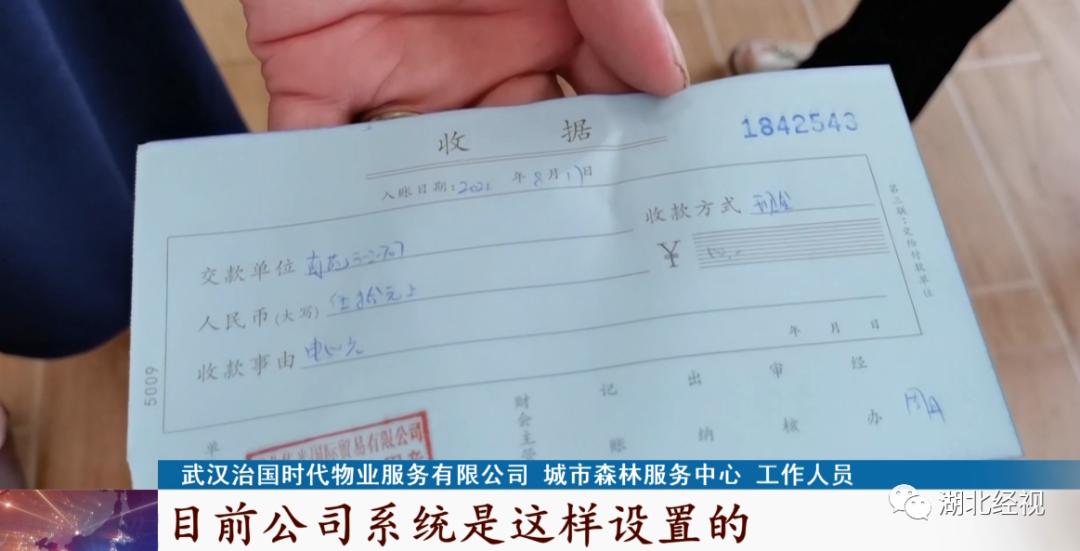 收据
1842543
入账日期:2021年8月17日
收款方式 现金
交款单位
¥
人民币(大写) 伍拾元
收款事由
年 月 日
第三联:交给付款单位
5009
单
财会主管
记账
出纳
审核
经办
国际贸易有限公司
武汉治国时代物业服务有限公司 城市森林服务中心 工作人员
目前公司系统是这样设置的
湖北经视